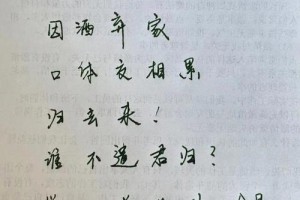 因酒弃家
口体交相累
归去来！
谁不遣君归？